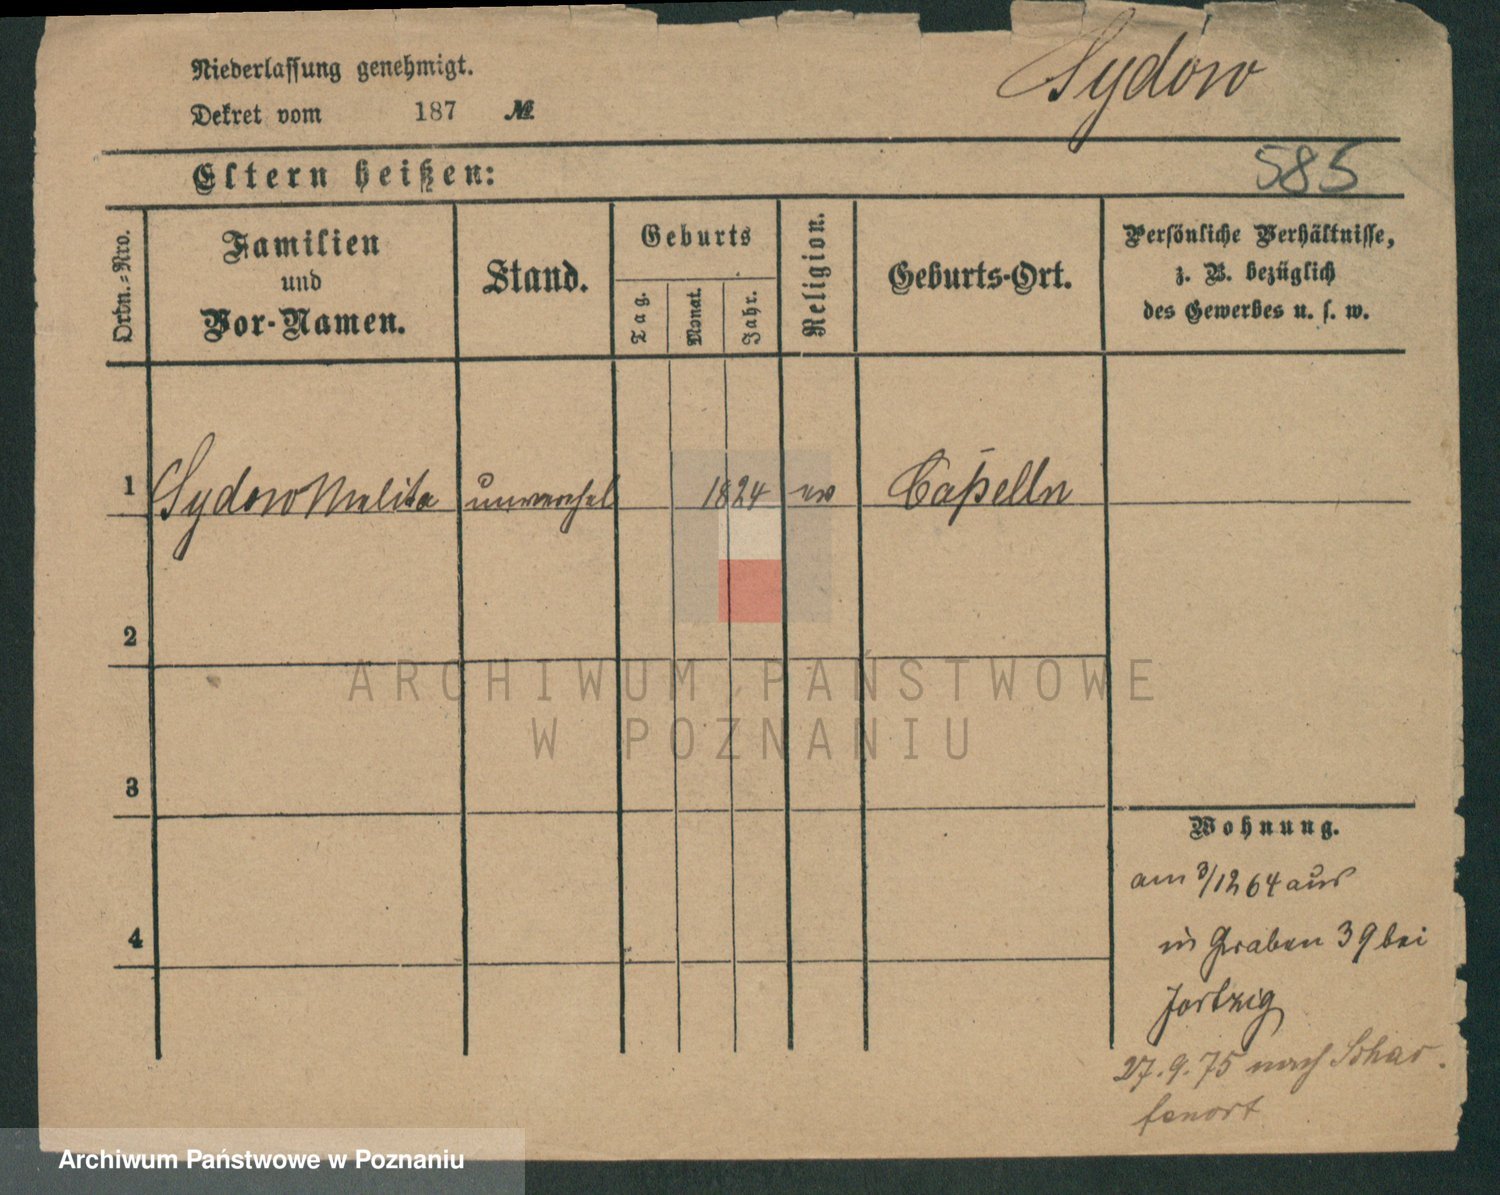 Niederlassung genehmigt.
Sydow
Dekret vom 187 №
585
Eltern heißen:
Ordn.-Nro.
Familien
und
Vor-Namen.
Stand.
Geburts
Tag.
Monat.
Jahr.
Religion.
Geburts-Ort.
Persönliche Verhältnisse,
z. B. bezüglich
des Gewerbes u. s. w.
1 Sydow Melita unverehel 1824 ev Capelln
2
3
4
Wohnung.
am 3/12 64 aus
in Graben 39 bei
27.9.75 nach Schar-
fenort
ARCHIWUM PAŃSTWOWE
W POZNANIU
Archiwum Państwowe w Poznaniu